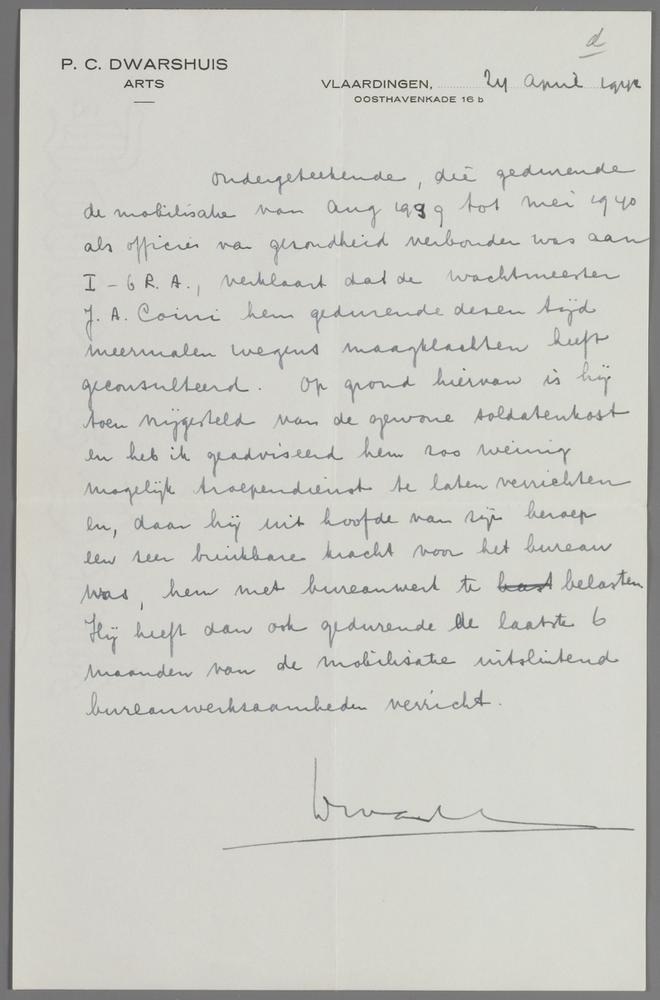 d
P. C. DWARSHUIS
ARTS
VLAARDINGEN, 24 april 1942
OOSTHAVENKADE 16 b
ondergeteekende, die gedurende
de mobilisatie van Aug 1939 tot mei 1940
als officier van gezondheid verbonden was aan
I - 6 R. A., verklaart dat de wachtmeester
J. A. Coini hem gedurende dezen tijd
meermalen wegens maagklachten heeft
geconsulteerd. Op grond hiervan is hij
toen vrijgesteld van de gewone soldatenkost
en heb ik geadviseerd hem zoo weinig
mogelijk troependienst te laten verrichten
en, daar hij uit hoofde van zijn beroep
een zeer bruikbare kracht voor het bureau
was, hem met bureauwerk te belasten
Hij heeft dan ook gedurende de laatste 6
maanden van de mobilisatie uitsluitend
bureauwerkzaamheden verricht.